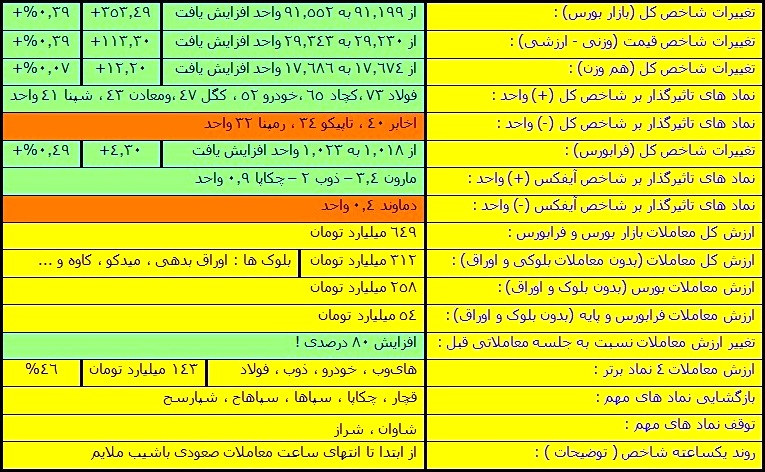 تغییرات شاخص کل (بازار بورس) : از ۹۱,۱۹۹ به ۹۱,۵۵۲ واحد افزایش یافت +۳۵۳,۴۹ +%۰,۳۹
تغییرات شاخص قیمت (وزنی - ارزشی) : از ۲۹,۲۳۰ به ۲۹,۳۴۳ واحد افزایش یافت +۱۱۳,۳۰ +%۰,۳۹
تغییرات شاخص کل (هم وزن) : از ۱۷,۶۷۴ به ۱۷,۶۸۶ واحد افزایش یافت +۱۲,۲۰ +%۰,۰۷
نماد های تاثیرگذار بر شاخص کل (+) واحد : فولاد ۷۳ ،کچاد ۶۵ ،خودرو ۵۲ ، کگل ۴۷ ،ومعادن ۴۳ ، شپنا ۴۱ واحد
نماد های تاثیرگذار بر شاخص کل (-) واحد : اخابر ۴۰ ، تاپیکو ۳۴ ، رمپنا ۳۲ واحد
تغییرات شاخص کل (فرابورس) : از ۱,۰۱۸ به ۱,۰۲۳ واحد افزایش یافت +۴,۳۰ +%۰,۴۹
نماد های تاثیرگذار بر شاخص آیفکس (+) واحد : مارون ۳,۴ – ذوب ۲ – چکاپا ۰,۹ واحد
نماد های تاثیرگذار بر شاخص آیفکس (-) واحد : دماوند ۰,۴ واحد
ارزش کل معاملات بازار بورس و فرابورس : ۶۴۹ میلیارد تومان
ارزش کل معاملات (بدون معاملات بلوکی و اوراق) : ۳۱۲ میلیارد تومان بلوک ها : اوراق بدهی ، میدکو ، کاوه و ...
ارزش معاملات بورس (بدون بلوک و اوراق) : ۲۵۸ میلیارد تومان
ارزش معاملات فرابورس و پایه (بدون بلوک و اوراق) : ۵۴ میلیارد تومان
تغییر ارزش معاملات نسبت به جلسه معاملاتی قبل : افزایش ۸۰ درصدی !
ارزش معاملات ۴ نماد برتر : های‌وب ، خودرو ، ذوب ، فولاد ۱۴۳ میلیارد تومان %۴۶
بازگشایی نماد های مهم : قچار ، چکاپا ، سپاها ، سپاهاح ، شپارسح
توقف نماد های مهم : شاوان ، شراز
روند یکساعته شاخص ( توضیحات ) : از ابتدا تا انتهای ساعت معاملات صعودی باشیب ملایم